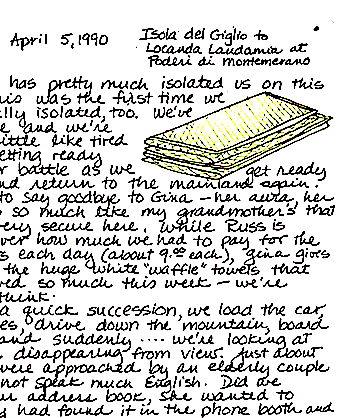 April 5, 1990
Isola del Giglio to
Locanda Laudamia at
Poderi di Montemerano
has pretty much isolated us on this
his was the first time we
lly isolated, too. We've
e and we're
ittle like tired
etting ready
r battle as we get ready
nd return to the mainland again.
to say goodbye to Gina – her aura, her
so much like my grandmother's that
ery secure here. While Russ is
ver how much we had to pay for the
s each day (about 9.00 each), Gina gives
the huge white "waffle" towels that
ved so much this week – we're
think.
a quick succession, we load the car,
es, drive down the mountain, board
and suddenly .... we're looking at
disappearing from view. Just about
were approached by an elderly couple
not speak much English. Did we
ur address book, she wanted to
y had found it in the phone booth and